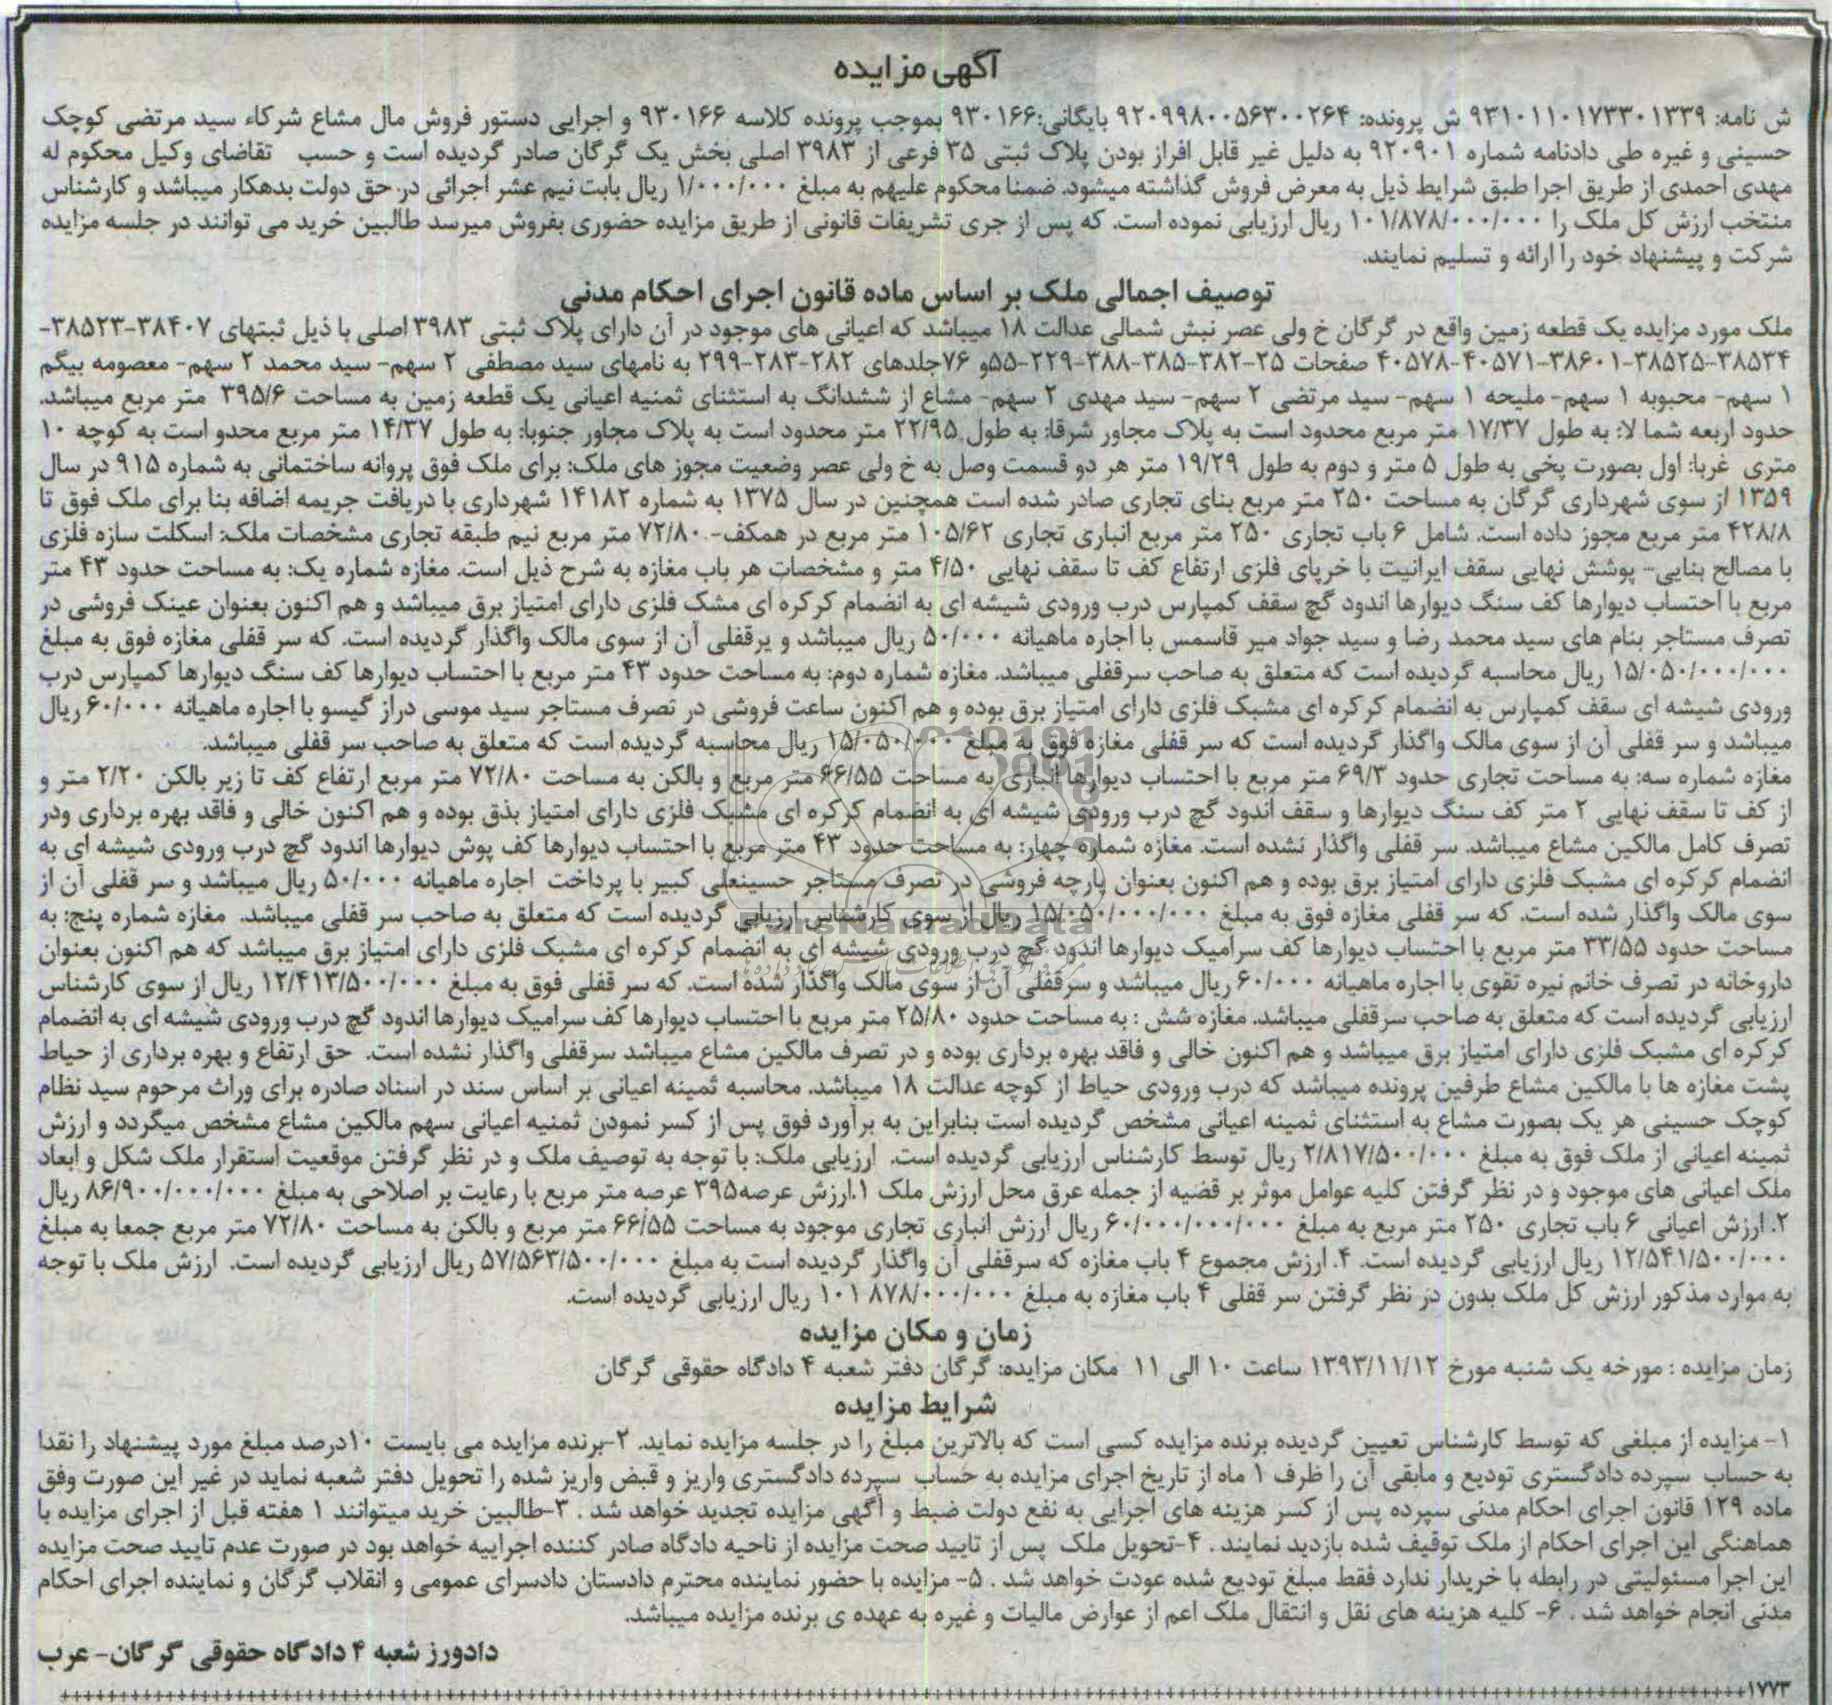 آگهی مزایده
ش نامه: ۹۳۱۰۱۱۰۱۷۳۳۰۱۳۳۹ ش پرونده: ۹۲۰۹۹۸۰۰۵۶۳۰۰۲۶۴ بایگانی:۹۳۰۱۶۶ بموجب پرونده کلاسه ۹۳۰۱۶۶ و اجرایی دستور فروش مال مشاع شرکاء سید مرتضی کوچک
حسینی و غیره طی دادنامه شماره ۹۲۰۹۰۱ به دلیل غیر قابل افراز بودن پلاک ثبتی ۳۵ فرعی از ۳۹۸۳ اصلی بخش یک گرگان صادر گردیده است و حسب تقاضای وکیل محکوم له
مهدی احمدی از طریق اجرا طبق شرایط ذیل به معرض فروش گذاشته میشود. ضمنا محکوم علیهم به مبلغ ۱/۰۰۰/۰۰۰ ریال بابت نیم عشر اجرائی در حق دولت بدهکار میباشد و کارشناس
منتخب ارزش کل ملک را ۱۰۱/۸۷۸/۰۰۰/۰۰۰ ریال ارزیابی نموده است. که پس از جری تشریفات قانونی از طریق مزایده حضوری بفروش میرسد طالبین خرید می توانند در جلسه مزایده
شرکت و پیشنهاد خود را ارائه و تسلیم نمایند.
توصیف اجمالی ملک بر اساس ماده قانون اجرای احکام مدنی
ملک مورد مزایده یک قطعه زمین واقع در گرگان خ ولی عصر نبش شمالی عدالت ۱۸ میباشد که اعیانی های موجود در آن دارای پلاک ثبتی ۳۹۸۳ اصلی با ذیل ثبتهای ۳۸۴۰۷-۳۸۵۲۳-
۳۸۵۳۴-۳۸۵۲۵-۳۸۶۰۱-۴۰۵۷۱-۴۰۵۷۸ صفحات ۲۵-۳۸۲-۳۸۵-۳۸۸-۲۲۹-۵۵و ۷۶جلدهای ۲۸۲-۲۸۳-۲۹۹ به نامهای سید مصطفی ۲ سهم- سید محمد ۲ سهم- معصومه بیگم
۱ سهم- محبوبه ۱ سهم- ملیحه ۱ سهم- سید مرتضی ۲ سهم- سید مهدی ۲ سهم- مشاع از ششدانگ به استثنای ثمنیه اعیانی یک قطعه زمین به مساحت ۳۹۵/۶ متر مربع میباشد.
حدود اربعه شما لا: به طول ۱۷/۳۷ متر مربع محدود است به پلاک مجاور شرقا: به طول ۲۲/۹۵ متر محدود است به پلاک مجاور جنوبا: به طول ۱۴/۳۷ متر مربع محدو است به کوچه ۱۰
متری غربا: اول بصورت پخی به طول ۵ متر و دوم به طول ۱۹/۲۹ متر هر دو قسمت وصل به خ ولی عصر وضعیت مجوز های ملک: برای ملک فوق پروانه ساختمانی به شماره ۹۱۵ در سال
۱۳۵۹ از سوی شهرداری گرگان به مساحت ۲۵۰ متر مربع بنای تجاری صادر شده است همچنین در سال ۱۳۷۵ به شماره ۱۴۱۸۲ شهرداری با دریافت جریمه اضافه بنا برای ملک فوق تا
۴۲۸/۸ متر مربع مجوز داده است. شامل ۶ باب تجاری ۲۵۰ متر مربع انباری تجاری ۱۰۵/۶۲ متر مربع در همکف- ۷۲/۸۰ متر مربع نیم طبقه تجاری مشخصات ملک: اسکلت سازه فلزی
با مصالح بنایی- پوشش نهایی سقف ایرانیت با خرپای فلزی ارتفاع کف تا سقف نهایی ۴/۵۰ متر و مشخصات هر باب مغازه به شرح ذیل است. مغازه شماره یک: به مساحت حدود ۴۳ متر
مربع با احتساب دیوارها کف سنگ دیوارها اندود گچ سقف کمپارس درب ورودی شیشه ای به انضمام کرکره ای مشک فلزی دارای امتیاز برق میباشد و هم اکنون بعنوان عینک فروشی در
تصرف مستاجر بنام های سید محمد رضا و سید جواد میر قاسمس با اجاره ماهیانه ۵۰/۰۰۰ ریال میباشد و یرقفلی آن از سوی مالک واگذار گردیده است. که سر قفلی مغازه فوق به مبلغ
۱۵/۰۵۰/۰۰۰/۰۰۰ ریال محاسبه گردیده است که متعلق به صاحب سرقفلی میباشد. مغازه شماره دوم: به مساحت حدود ۴۳ متر مربع با احتساب دیوارها کف سنگ دیوارها کمپارس درب
ورودی شیشه ای سقف کمپارس به انضمام کرکره ای مشبک فلزی دارای امتیاز برق بوده و هم اکنون ساعت فروشی در تصرف مستاجر سید موسی دراز گیسو با اجاره ماهیانه ۶۰/۰۰۰ ریال
میباشد و سر قفلی آن از سوی مالک واگذار گردیده است که سر قفلی مغازه فوق به مبلغ ۱۵/۰۵۰/۰۰۰ ریال محاسبه گردیده است که متعلق به صاحب سر قفلی میباشد.
مغازه شماره سه: به مساحت تجاری حدود ۶۹/۳ متر مربع با احتساب دیوارها انباری به مساحت ۶۶/۵۵ متر مربع و بالکن به مساحت ۷۲/۸۰ متر مربع ارتفاع کف تا زیر بالکن ۲/۲۰ متر و
از کف تا سقف نهایی ۲ متر کف سنگ دیوارها و سقف اندود گچ درب ورودی شیشه ای به انضمام کرکره ای مشبک فلزی دارای امتیاز بذق بوده و هم اکنون خالی و فاقد بهره برداری ودر
تصرف کامل مالکین مشاع میباشد. سر قفلی واگذار نشده است. مغازه شماره چهار: به مساحت حدود ۴۳ متر مربع با احتساب دیوارها کف پوش دیوارها اندود گچ درب ورودی شیشه ای به
انضمام کرکره ای مشبک فلزی دارای امتیاز برق بوده و هم اکنون بعنوان پارچه فروشی در تصرف مستاجر حسینعلی کبیر با پرداخت اجاره ماهیانه ۵۰/۰۰۰ ریال میباشد و سر قفلی آن از
سوی مالک واگذار شده است. که سر قفلی مغازه فوق به مبلغ ۱۵/۰۵۰/۰۰۰/۰۰۰ ریال از سوی کارشناس ارزیابی گردیده است که متعلق به صاحب سر قفلی میباشد. مغازه شماره پنج: به
ParsNamadData
مساحت حدود ۳۳/۵۵ متر مربع با احتساب دیوارها کف سرامیک دیوارها اندود گچ درب ورودی شیشه ای به انضمام کرکره ای مشبک فلزی دارای امتیاز برق میباشد که هم اکنون بعنوان
داروخانه در تصرف خانم نیره تقوی با اجاره ماهیانه ۶۰/۰۰۰ ریال میباشد و سرقفلی آن از سوی مالک واگذار شده است. که سر قفلی فوق به مبلغ ۱۲/۴۱۳/۵۰۰/۰۰۰ ریال از سوی کارشناس
ارزیابی گردیده است که متعلق به صاحب سرقفلی میباشد. مغازه شش : به مساحت حدود ۲۵/۸۰ متر مربع با احتساب دیوارها کف سرامیک دیوارها اندود گچ درب ورودی شیشه ای به انضمام
کرکره ای مشبک فلزی دارای امتیاز برق میباشد و هم اکنون خالی و فاقد بهره برداری بوده و در تصرف مالکین مشاع میباشد سرقفلی واگذار نشده است. حق ارتفاع و بهره برداری از حیاط
پشت مغازه ها با مالکین مشاع طرفین پرونده میباشد که درب ورودی حیاط از کوچه عدالت ۱۸ میباشد. محاسبه ثمینه اعیانی بر اساس سند در اسناد صادره برای وراث مرحوم سید نظام
کوچک حسینی هر یک بصورت مشاع به استثنای ثمینه اعیانی مشخص گردیده است بنابراین به برآورد فوق پس از کسر نمودن ثمنیه اعیانی سهم مالکین مشاع مشخص میگردد و ارزش
ثمینه اعیانی از ملک فوق به مبلغ ۲/۸۱۷/۵۰۰/۰۰۰ ریال توسط کارشناس ارزیابی گردیده است. ارزیابی ملک: با توجه به توصیف ملک و در نظر گرفتن موقعیت استقرار ملک شکل و ابعاد
ملک اعیانی های موجود و در نظر گرفتن کلیه عوامل موثر بر قضیه از جمله عرق محل ارزش ملک ۱.ارزش عرصه۳۹۵ عرصه متر مربع با رعایت بر اصلاحی به مبلغ ۸۶/۹۰۰/۰۰۰/۰۰۰ ریال
۲. ارزش اعیانی ۶ باب تجاری ۲۵۰ متر مربع به مبلغ ۶۰/۰۰۰/۰۰۰/۰۰۰ ریال ارزش انباری تجاری موجود به مساحت ۶۶/۵۵ متر مربع و بالکن به مساحت ۷۲/۸۰ متر مربع جمعا به مبلغ
۱۲/۵۴۱/۵۰۰/۰۰۰ ریال ارزیابی گردیده است. ۴. ارزش مجموع ۴ باب مغازه که سرقفلی آن واگذار گردیده است به مبلغ ۵۷/۵۶۳/۵۰۰/۰۰۰ ریال ارزیابی گردیده است. ارزش ملک با توجه
به موارد مذکور ارزش کل ملک بدون در نظر گرفتن سر قفلی ۴ باب مغازه به مبلغ ۱۰۱ ۸۷۸/۰۰۰/۰۰۰ ریال ارزیابی گردیده است.
زمان و مکان مزایده
زمان مزایده : مورخه یک شنبه مورخ ۱۳۹۳/۱۱/۱۲ ساعت ۱۰ الی ۱۱ مکان مزایده: گرگان دفتر شعبه ۴ دادگاه حقوقی گرگان
شرایط مزایده
۱- مزایده از مبلغی که توسط کارشناس تعیین گردیده برنده مزایده کسی است که بالاترین مبلغ را در جلسه مزایده نماید. ۲-برنده مزایده می بایست ۱۰درصد مبلغ مورد پیشنهاد را نقدا
به حساب سپرده دادگستری تودیع و مابقی آن را ظرف ۱ ماه از تاریخ اجرای مزایده به حساب سپرده دادگستری واریز و قبض واریز شده را تحویل دفتر شعبه نماید در غیر این صورت وفق
ماده ۱۲۹ قانون اجرای احکام مدنی سپرده پس از کسر هزینه های اجرایی به نفع دولت ضبط و آگهی مزایده تجدید خواهد شد . ۳-طالبین خرید میتوانند ۱ هفته قبل از اجرای مزایده با
هماهنگی این اجرای احکام از ملک توقیف شده بازدید نمایند . ۴-تحویل ملک پس از تایید صحت مزایده از ناحیه دادگاه صادر کننده اجراییه خواهد بود در صورت عدم تایید صحت مزایده
این اجرا مسئولیتی در رابطه با خریدار ندارد فقط مبلغ تودیع شده عودت خواهد شد . ۵- مزایده با حضور نماینده محترم دادستان دادسرای عمومی و انقلاب گرگان و نماینده اجرای احکام
مدنی انجام خواهد شد . ۶- کلیه هزینه های نقل و انتقال ملک اعم از عوارض مالیات و غیره به عهده ی برنده مزایده میباشد.
دادورز شعبه ۴ دادگاه حقوقی گرگان- عرب
۱۷۷۳